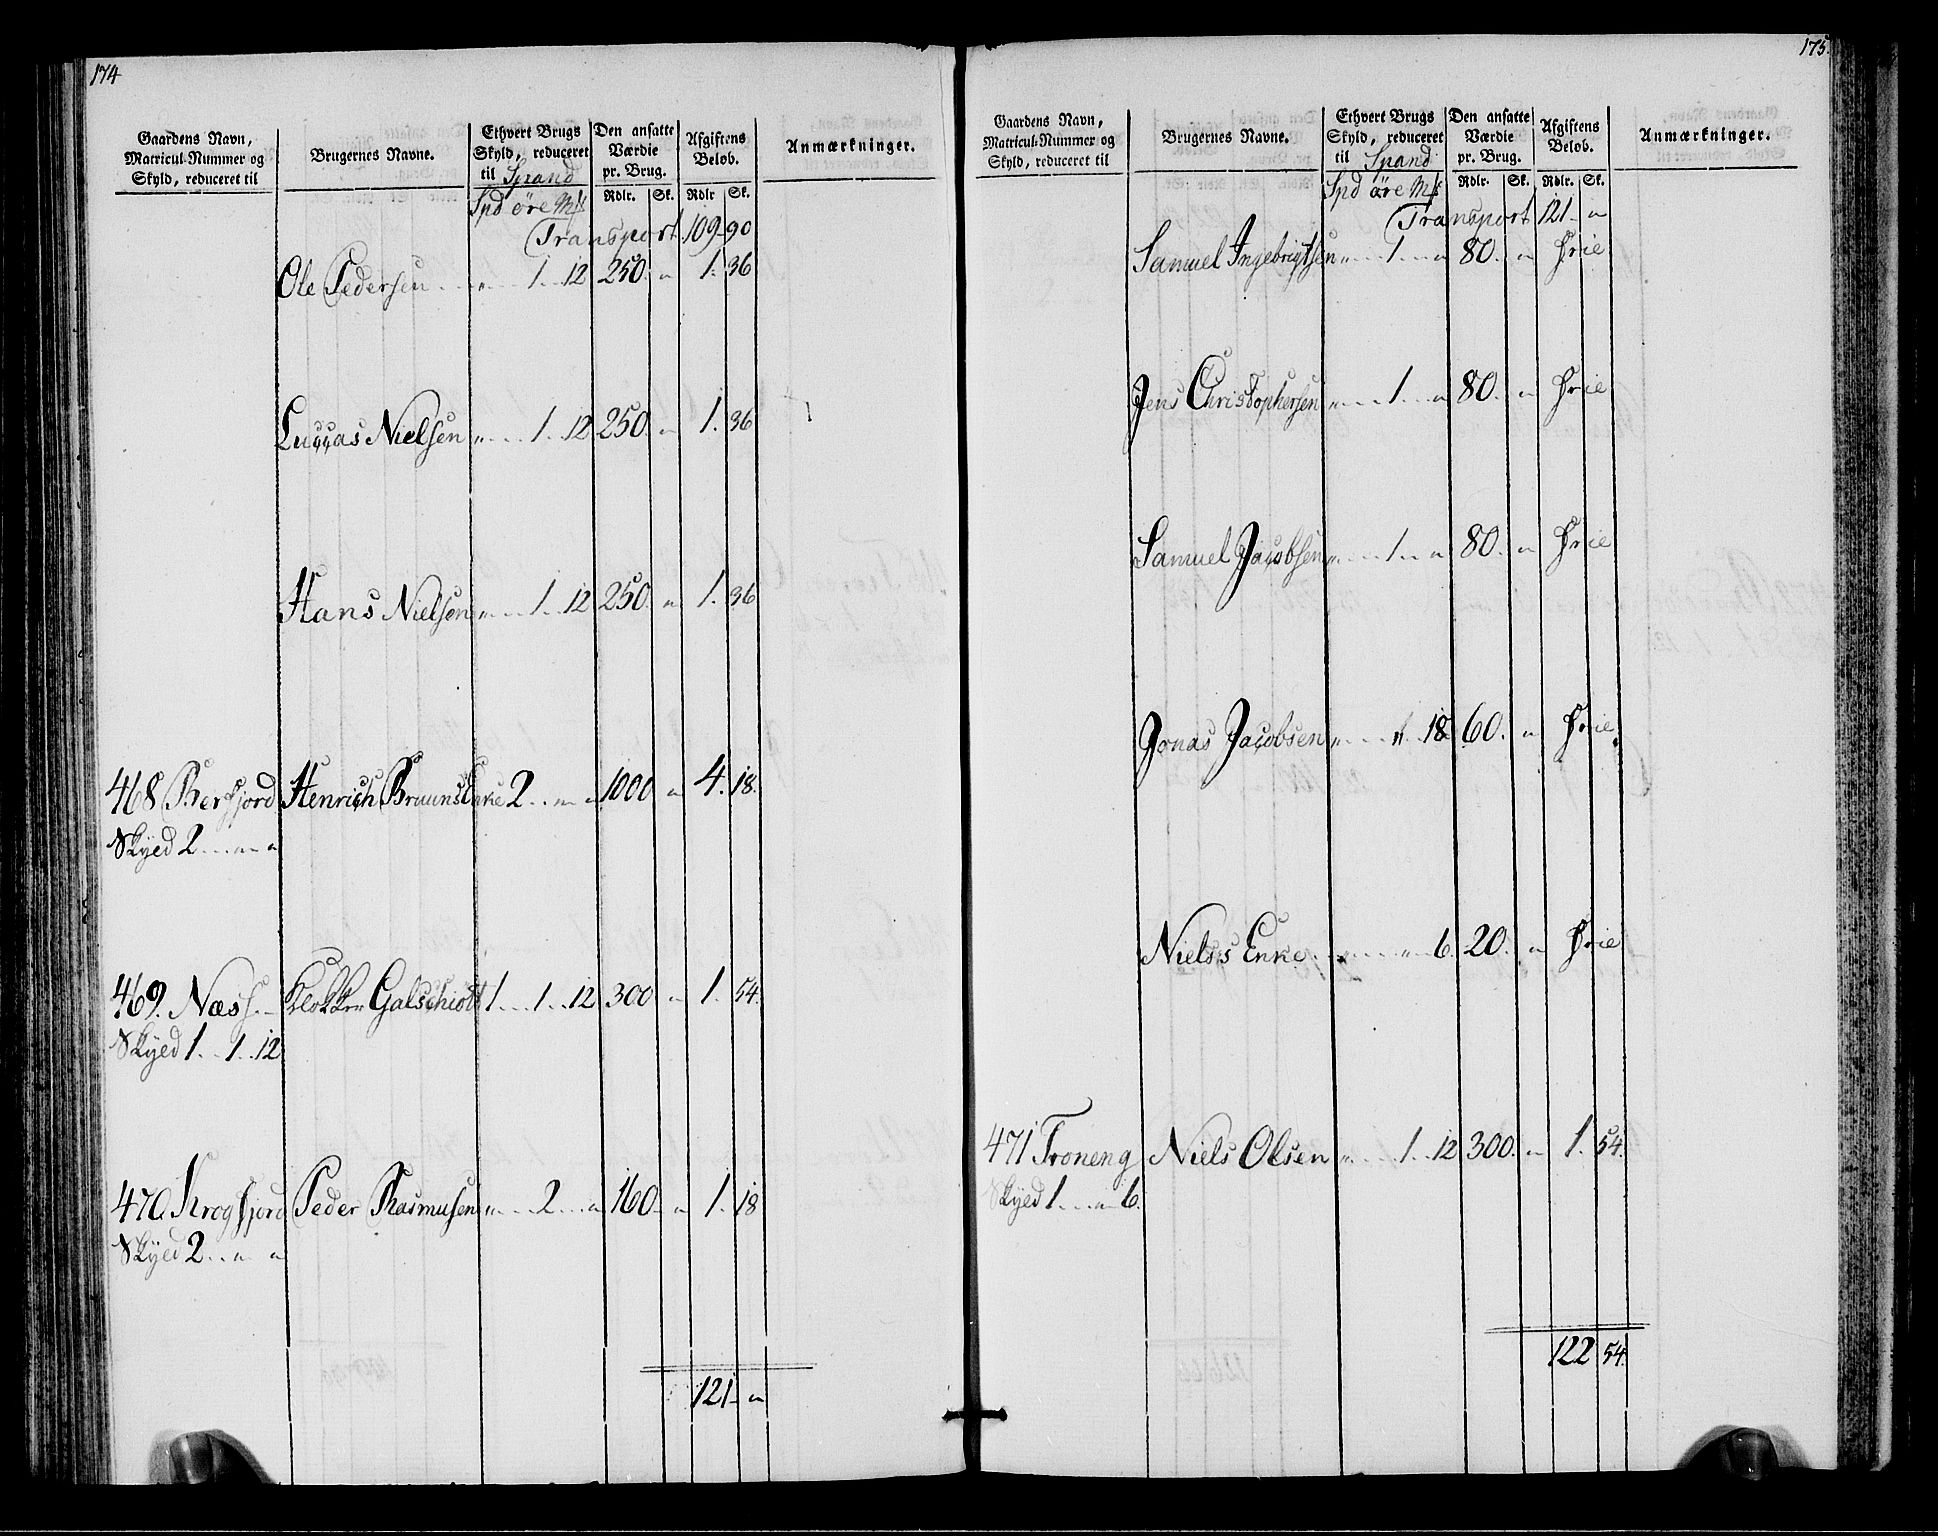 174
Gaardens Navn, Matricul-Nummer og Skyld, reduceret til
Brugernes Navne.
Ethvert Brugs Skyld, reduceret til Spand
Den ansatte Værdie pr. Brug.
Afgiftens Beløb.
Anmærkninger.
Spd øre Mk Rdlr. Sk. Rdlr Sk.
Transport 109 90
Ole Pedersen " 1 12 250 " 1. 36
Luccas Nielsen " 1 12 250 " 1. 36
Hans Nielsen " 1 12 250 " 1. 36
468 Berfjord Henrich Bruuns Enke 2 " " 1000 " 4. 18.
Skyld 2 " "
469. Næss Klokker Galschiødt 1 1 12 300 " 1. 54.
Skyld 1 1 12
470. Krogfjord Peder Rasmusen " 2 " 160 " 1. 18
Skyld 2 " "
121 "
175.
Gaardens Navn, Matricul-Nummer og Skyld, reduceret til
Brugernes Navne.
Ethvert Brugs Skyld, reduceret til Spand
Den ansatte Værdie pr. Brug.
Afgiftens Beløb.
Anmærkninger.
Spd øre Mk Rdlr. Sk. Rdlr. Sk.
Transport 121 "
Samuel Ingebrigtsen " 1 " 80. " Frie
Jens Christophersen " 1 " 80. " Frie
Samuel Jacobsen " 1 " 80. " Frie
Jonas Jacobsen " " 18 60. " Frie.
Niels's Enke " " 6 20. " Frie
471 Troneng Niels Olsen " 1 12 300. " 1. 54.
Skyld 1 " 6.
122 54.